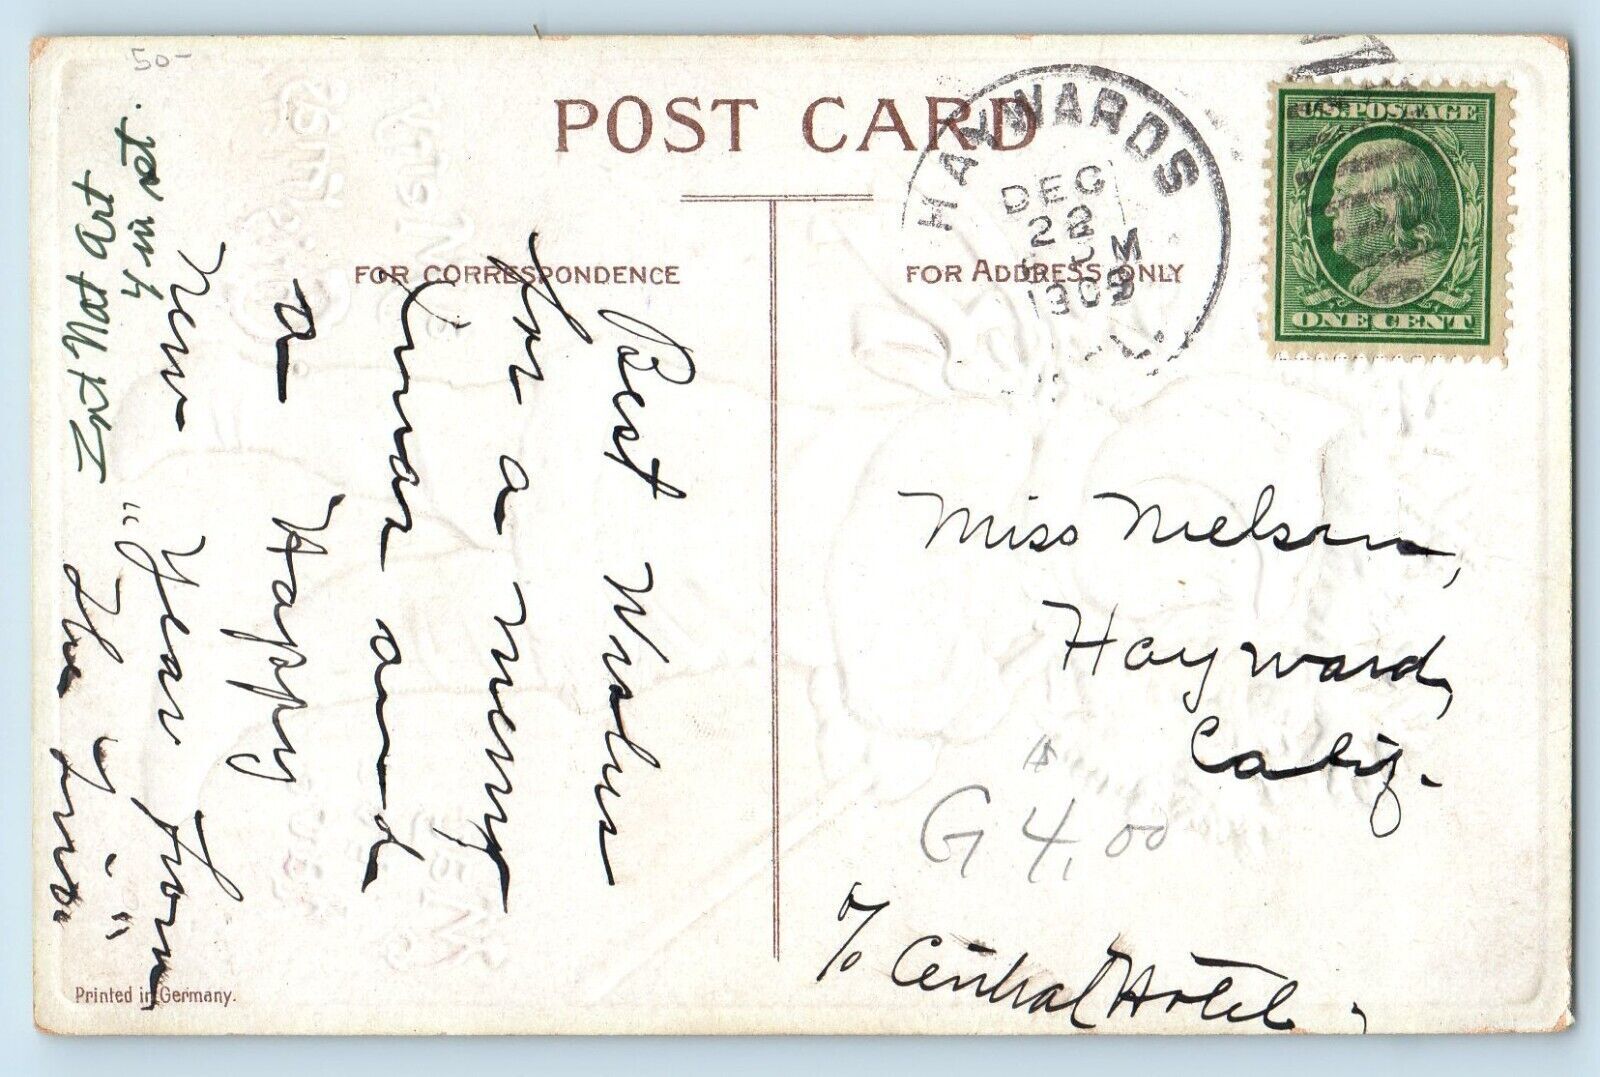 50-
POST CARD
HAYWARDS
DEC
22
M
1909
CAL.
U.S. POSTAGE
ONE CENT
FOR CORRESPONDENCE
FOR ADDRESS ONLY
Int Nat Art
Best Wishes
for a merry
Xmas and
a Happy
New Year from
"The
Miss Nielsen,
Hayward,
Calif.
G 4.00
% Central Hotel.
Printed in Germany.